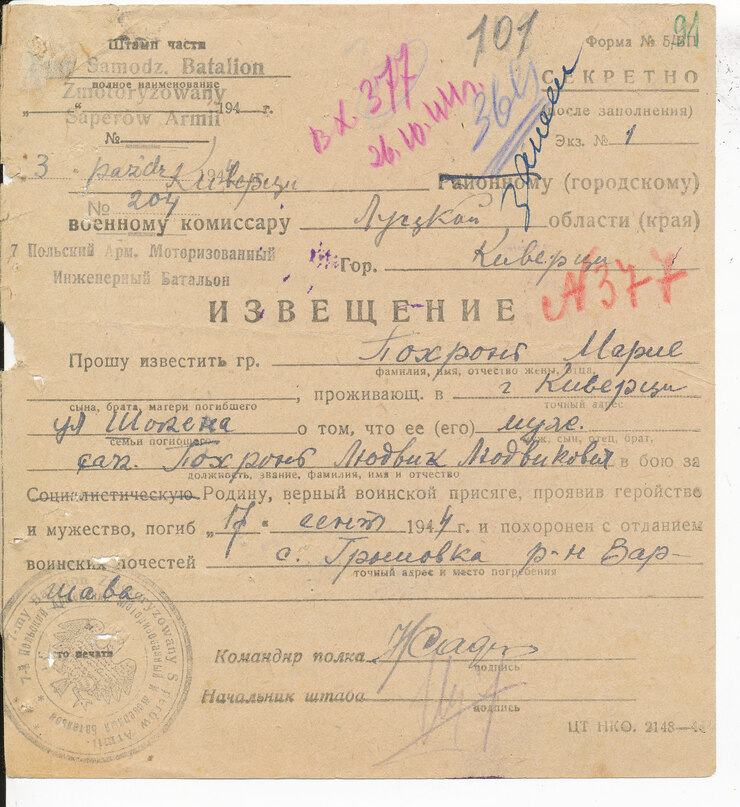 Штамп части
Samodz. Batalion
полное наименование
Zmotoryzowany
„ “ 194 г.
Saperów Armii
№
3 paźdz. 1944
Киверци
№ 204
101
94
Форма № 5/БП
вх. 377
26.10.
364
СЕКРЕТНО
(после заполнения)
Экз. № 1
Районному (городскому)
военному комиссару Луцкой области (края)
7 Польский Арм. Моторизованный
Инженерный Батальон
Гор. Киверци
№377
ИЗВЕЩЕНИЕ
Прошу известить гр. Похронь Марие
фамилия, имя, отчество жены, отца,
, проживающ. в г Киверци
сына, брата, матери погибшего точный адрес
ул Шопена о том, что ее (его) муж.
семьи погибшего муж, сын, отец, брат,
сап. Похронь Людвик Людвикович в бою за
должность, звание, фамилия, имя и отчество
Социалистическую Родину, верный воинской присяге, проявив геройство
и мужество, погиб „17“ сент 1944 г. и похоронен с отданием
воинских почестей с. Грошовка р-н Вар-
точный адрес и место погребения
шава
место печати
Командир полка
подпись
Начальник штаба
подпись
ЦТ НКО. 2148—44